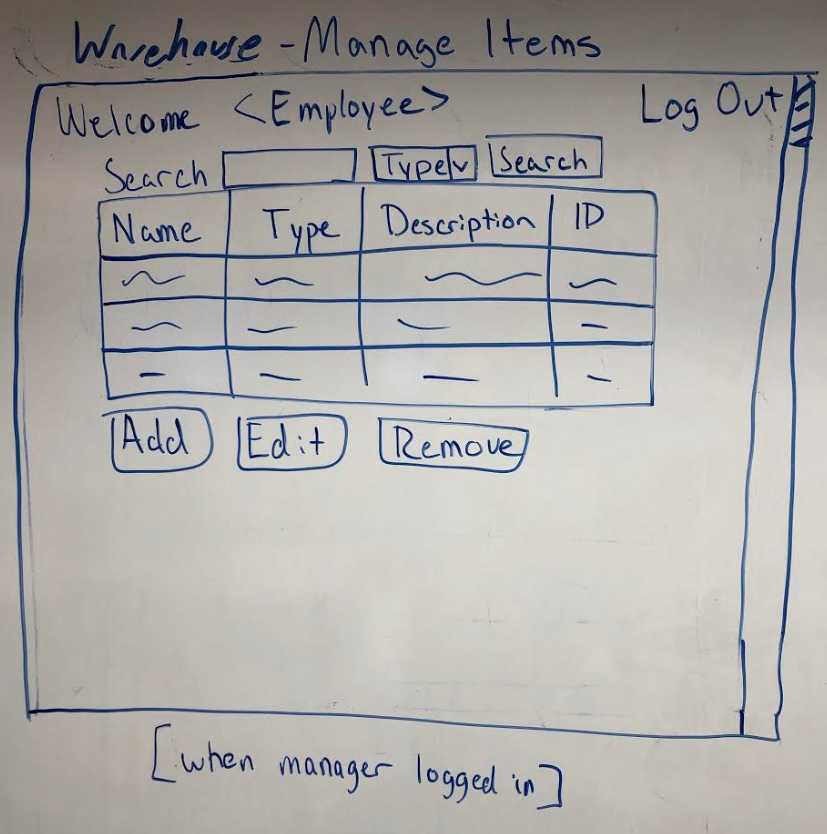 Warehouse - Manage Items
Welcome <Employee> Log Out
Search Type v Search
Name Type Description ID
Add Edit Remove
[when manager logged in]